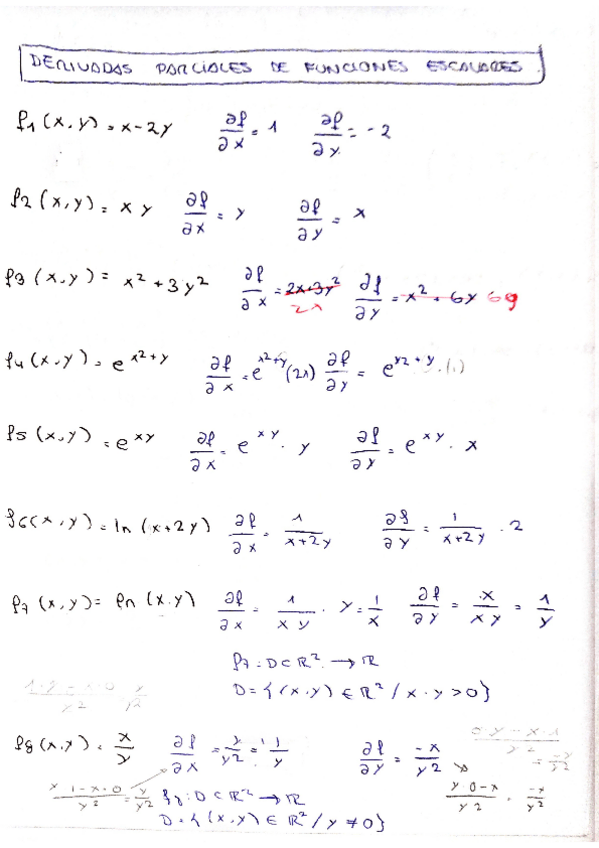 DERIVADAS PARCIALES DE FUNCIONES ESCALARES.
f1 (x,y) = x-2y ∂f/∂x = 1 ∂f/∂y = -2
f2 (x,y) = x y ∂f/∂x = y ∂f/∂y = x
f3 (x,y) = x² + 3y² ∂f/∂x = 2x+3y² 2x ∂f/∂y = x² + 6y 6y
f4 (x,y) = e^(x²+y) ∂f/∂x = e^(x²+y) (2x) ∂f/∂y = e^(x²+y) · (1)
f5 (x,y) = e^(xy) ∂f/∂x = e^(xy) · y ∂f/∂y = e^(xy) · x
f6 (x,y) = ln (x+2y) ∂f/∂x = 1/(x+2y) ∂f/∂y = 1/(x+2y) · 2
f7 (x,y) = ln (x·y) ∂f/∂x = 1/(xy) · y = 1/x ∂f/∂y = x/(xy) = 1/y
f7 : D⊂ℝ² → ℝ
D = {(x,y) ∈ ℝ² / x·y > 0}
f8 (x,y) = x/y ∂f/∂x = y/y² = 1/y ∂f/∂y = -x/y²
0·y - x·1/y² = -x/y²
1-x·0/y² = y/y² f8 : D⊂ℝ² → ℝ y·0-x/y² = -x/y²
D = {(x,y) ∈ ℝ² / y ≠ 0}